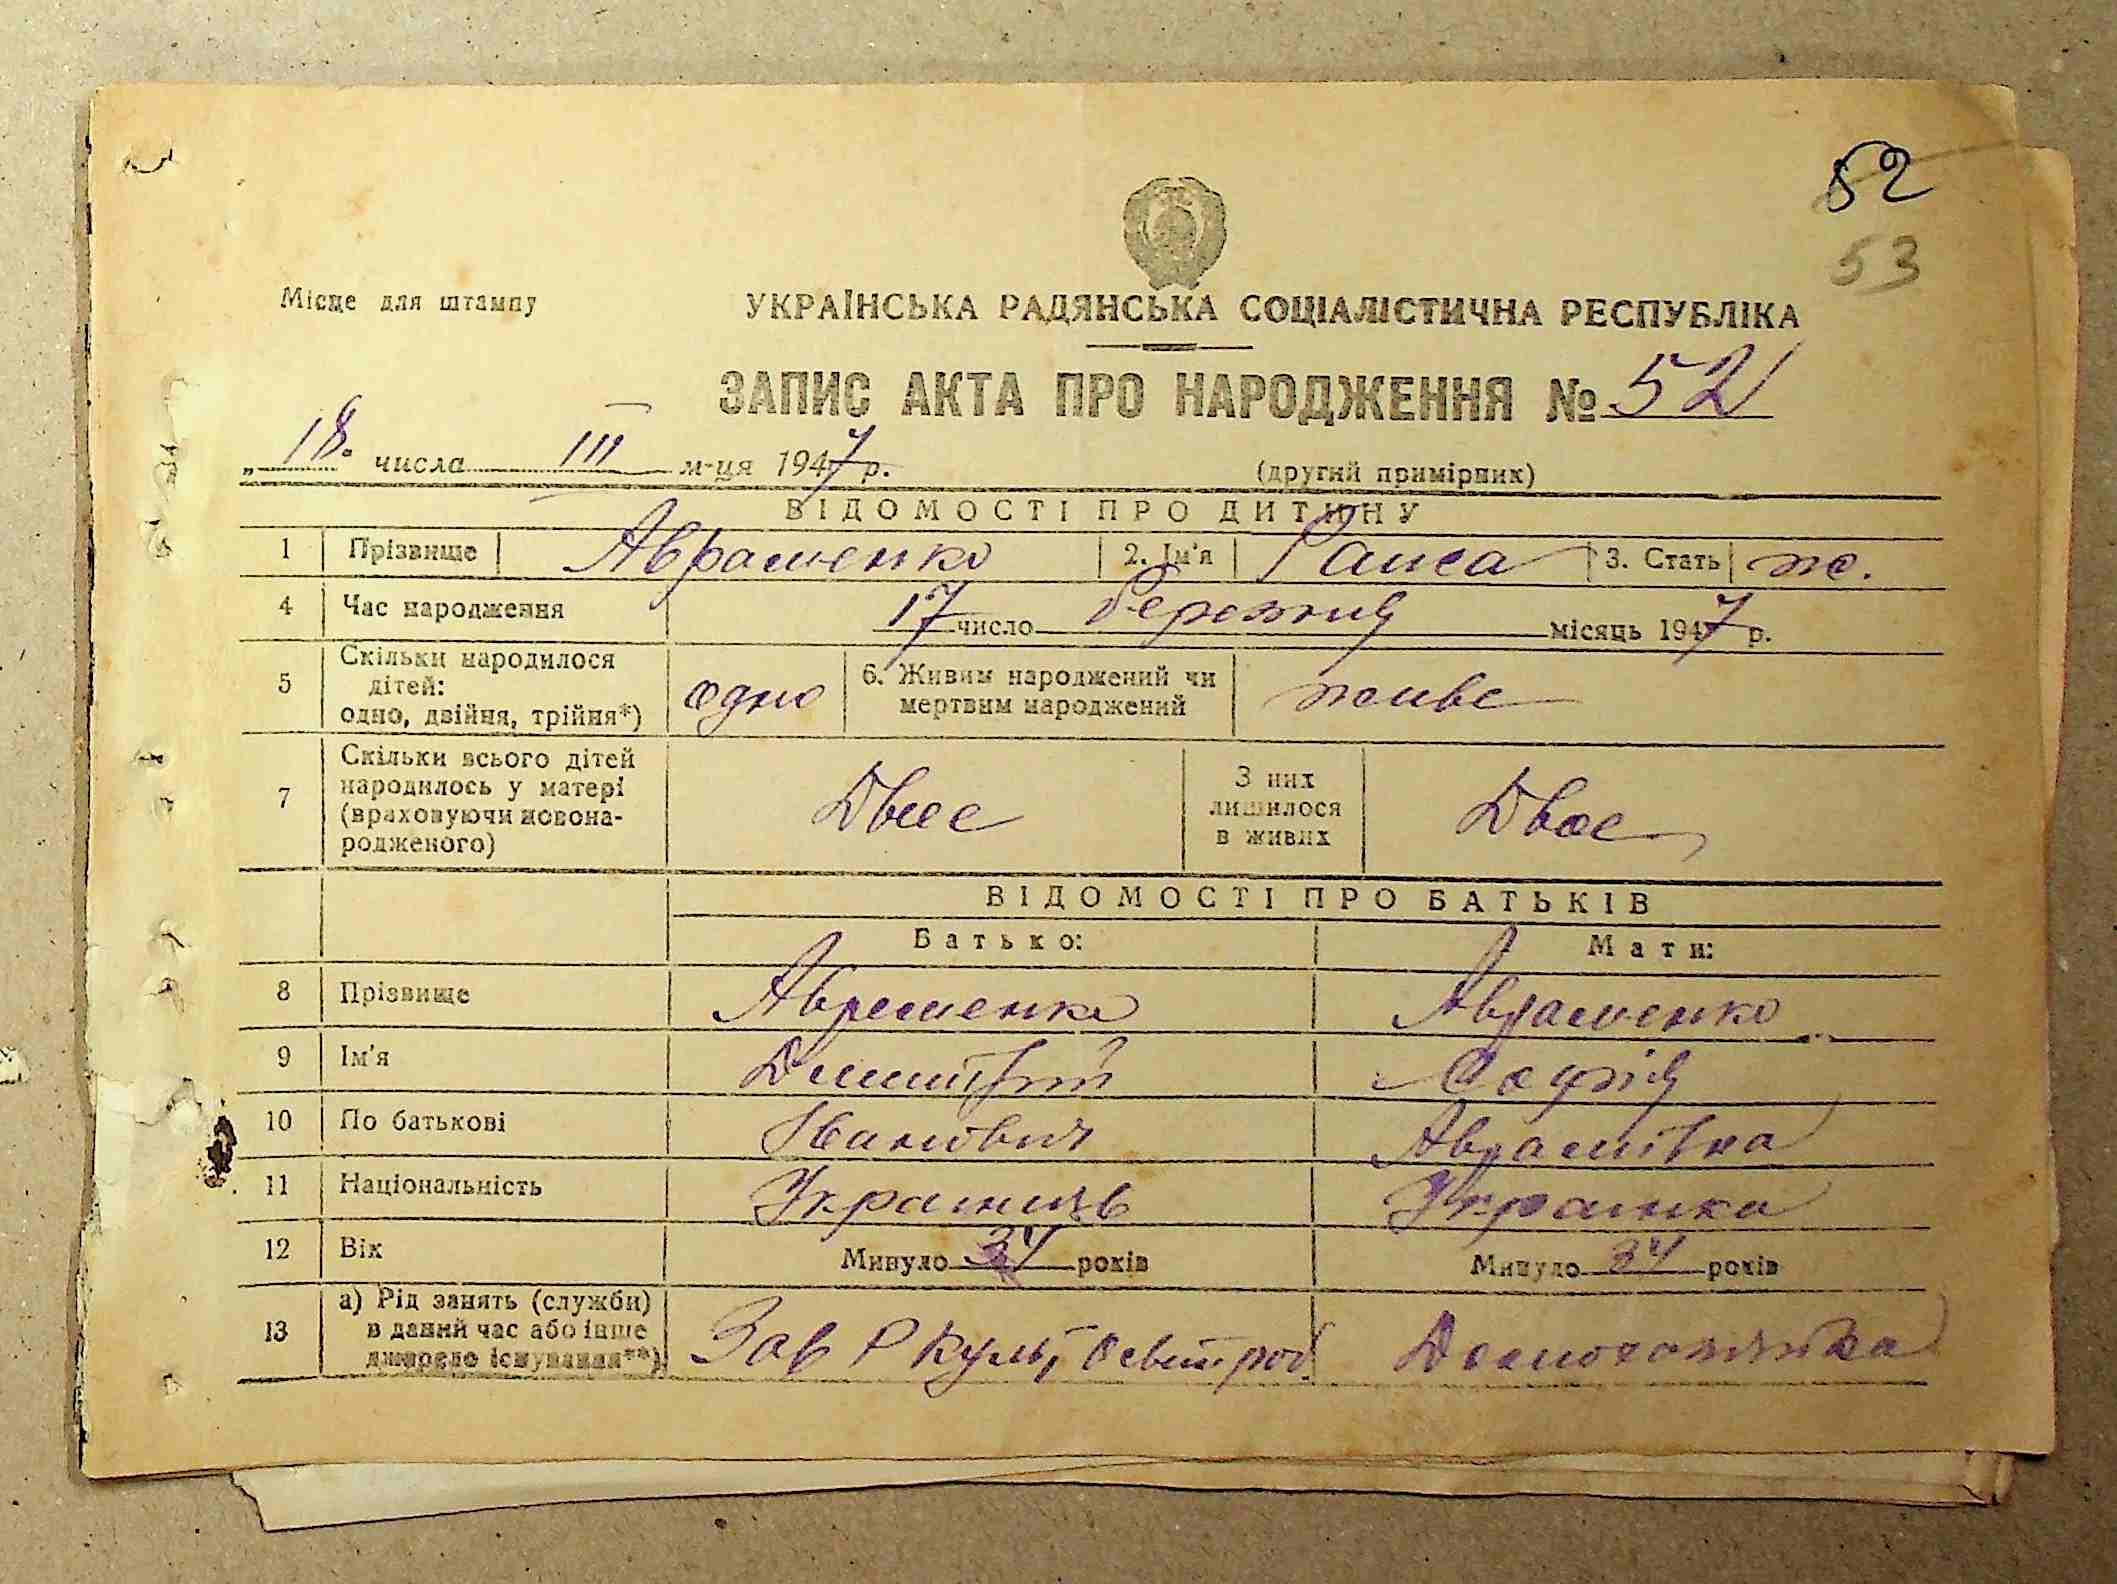 52
53
Місце для штампу
УКРАЇНСЬКА РАДЯНСЬКА СОЦІАЛІСТИЧНА РЕСПУБЛІКА
ЗАПИС АКТА ПРО НАРОДЖЕННЯ № 52
„18" числа III м-ця 1947 р.
(другий примірник)
ВІДОМОСТІ ПРО ДИТИНУ
1 Прізвище Авраменко 2. Ім'я Раиса 3. Стать ж.
4 Час народження 17 число березня місяць 1947 р.
5 Скільки народилося дітей: одно, двійня, трійня*) одно 6. Живим народжений чи мертвим народжений живе
7 Скільки всього дітей народилось у матері (враховуючи новонародженого) Двое З них лишилося в живих Двое
ВІДОМОСТІ ПРО БАТЬКІВ
Батько: Мати:
8 Прізвище Авраменко Авраменко
9 Ім'я Дмитрій Софія
10 По батькові Іванович Аврамівна
11 Національність Українець Українка
12 Вік Минуло 34 років Минуло 34 років
13 а) Рід занять (служби) в даний час або інше джерело існування**) Зав Р культ освіт роб. Домохазяйка